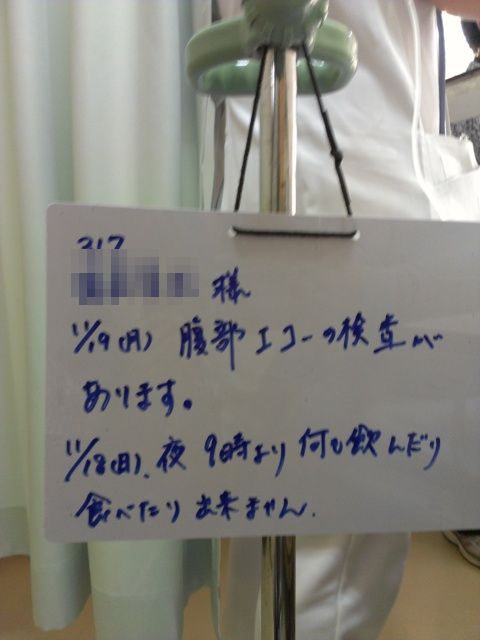 317
様
11/19(月) 腹部エコーの検査が
あります。
11/18(日)、夜 9時より 何も飲んだり
食べたり出来ません.